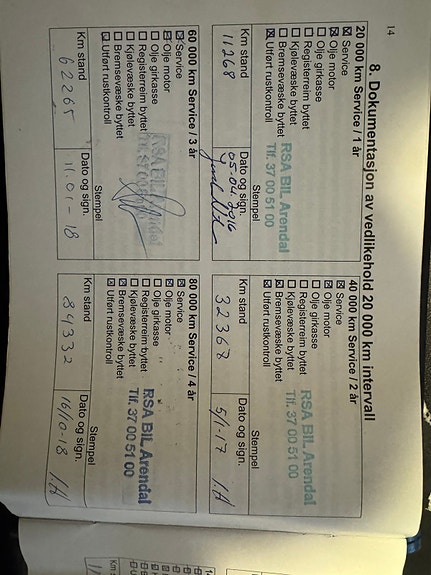 14
8. Dokumentasjon av vedlikehold 20 000 km intervall
20 000 km Service / 1 år
☒ Service
☒ Olje motor
☐ Olje girkasse
☐ Registerreim byttet
☐ Kjølevæske byttet
☐ Bremsevæske byttet
☒ Utført rustkontroll
RSA BIL Arendal
Tlf. 37 00 51 00
Stempel
Km stand
Dato og sign.
11268
05.04.2016
40 000 km Service / 2 år
☒ Service
☒ Olje motor
☐ Olje girkasse
☐ Registerreim byttet
☐ Kjølevæske byttet
☒ Bremsevæske byttet
☒ Utført rustkontroll
RSA BIL Arendal
Tlf. 37 00 51 00
Stempel
Km stand
Dato og sign.
32367
5/1-17
60 000 km Service / 3 år
☒ Service
☒ Olje motor
☐ Olje girkasse
☐ Registerreim byttet
☐ Kjølevæske byttet
☐ Bremsevæske byttet
☒ Utført rustkontroll
RSA BIL Arendal
Stempel
Km stand
Dato og sign.
62265
11-01-18
80 000 km Service / 4 år
☒ Service
☒ Olje motor
☐ Olje girkasse
☐ Registerreim byttet
☐ Kjølevæske byttet
☒ Bremsevæske byttet
☒ Utført rustkontroll
RSA BIL Arendal
Tlf. 37 00 51 00
Stempel
Km stand
Dato og sign.
84332
16/10-18